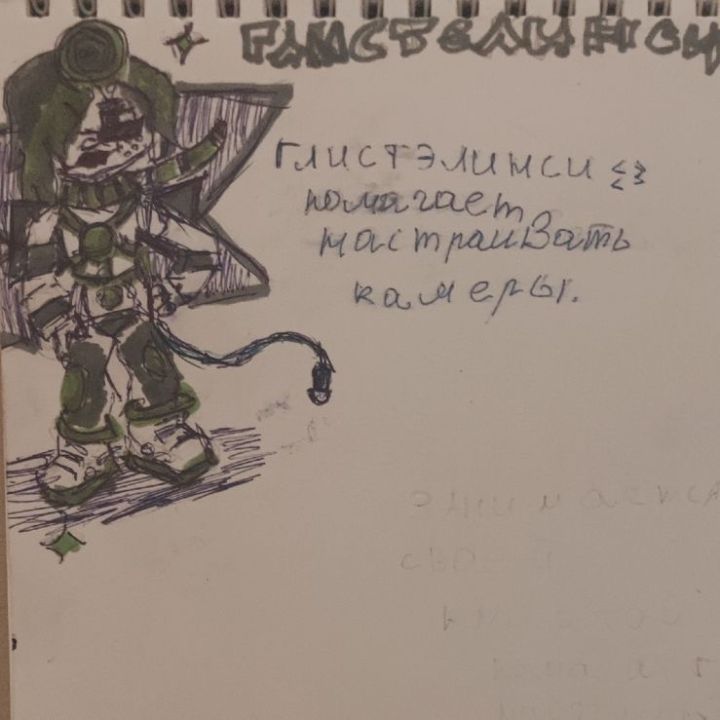 ГЛИСТЭЛИНСИ
глистэлинси <3
помагает
настраивать
камеры.